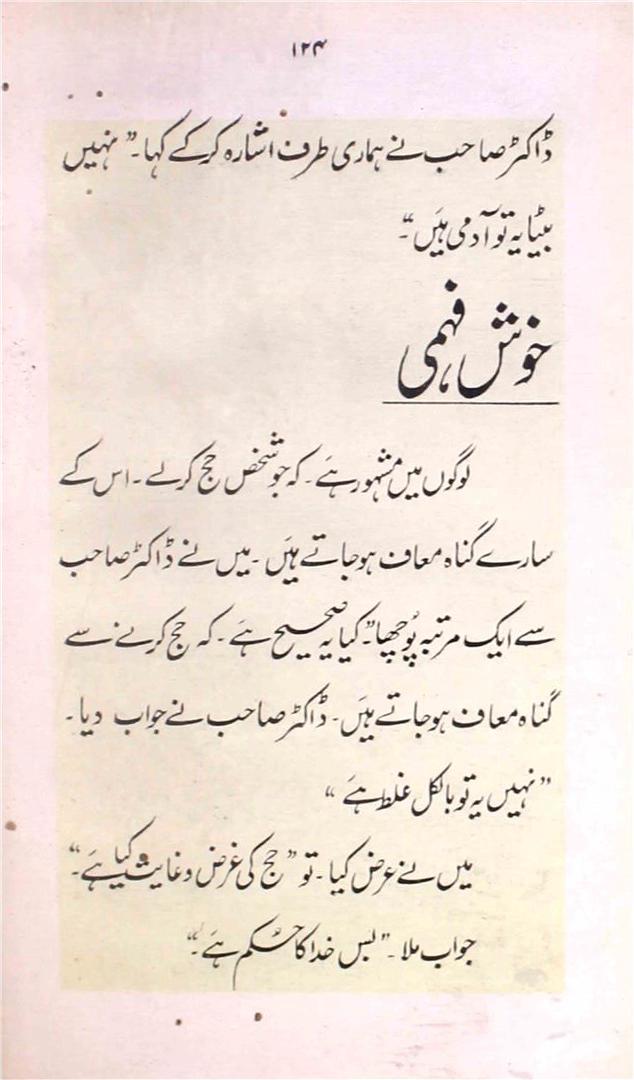 ۱۲۴
ڈاکٹر صاحب نے ہماری طرف اشارہ کرکے کہا۔ ” نہیں
بیٹا یہ تو آدمی ہیَں “۔
خوش فہمی
لوگوں میں مشہور ہےَ۔ کہ جو شخص حج کرلے۔ اس کے
سارے گناہ معاف ہوجاتے ہیَں۔ میں نے ڈاکٹر صاحب
سے ایک مرتبہ پُوچھا۔” کیا یہ صحیح ہےَ۔ کہ حج کرنے سے
گناہ معاف ہوجاتے ہیَں۔ ڈاکٹر صاحب نے جواب دیا۔
” نہیں یہ تو بالکل غلط ہےَ “
میں نے عرض کیا۔ تو ” حج کی غرض و غایت کیا ہےَ۔“
جواب ملا۔ ” بس خدا کا حُکم ہےَ۔“